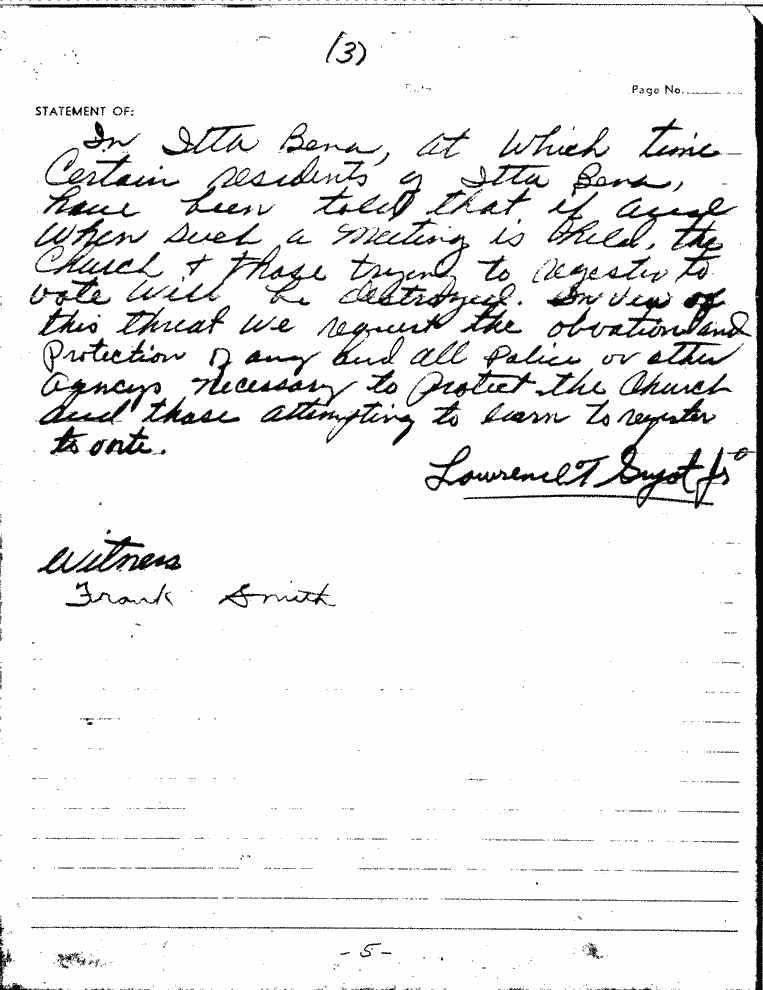 (3)
Date
Page No.
STATEMENT OF:
In Itta Bena, at which time
Certain residents of Itta Bena,
have been told that if and
When such a Meeting is held, the
Church + those trying to register to
vote will be destroyed. In view of
this threat we request the and
Protection of any and all Police or other
Agencys necessary to protect the Church
and those attempting to learn to register
to vote.
Lawrence T Guyot Jr
Witness
Frank Smith
- 5 -